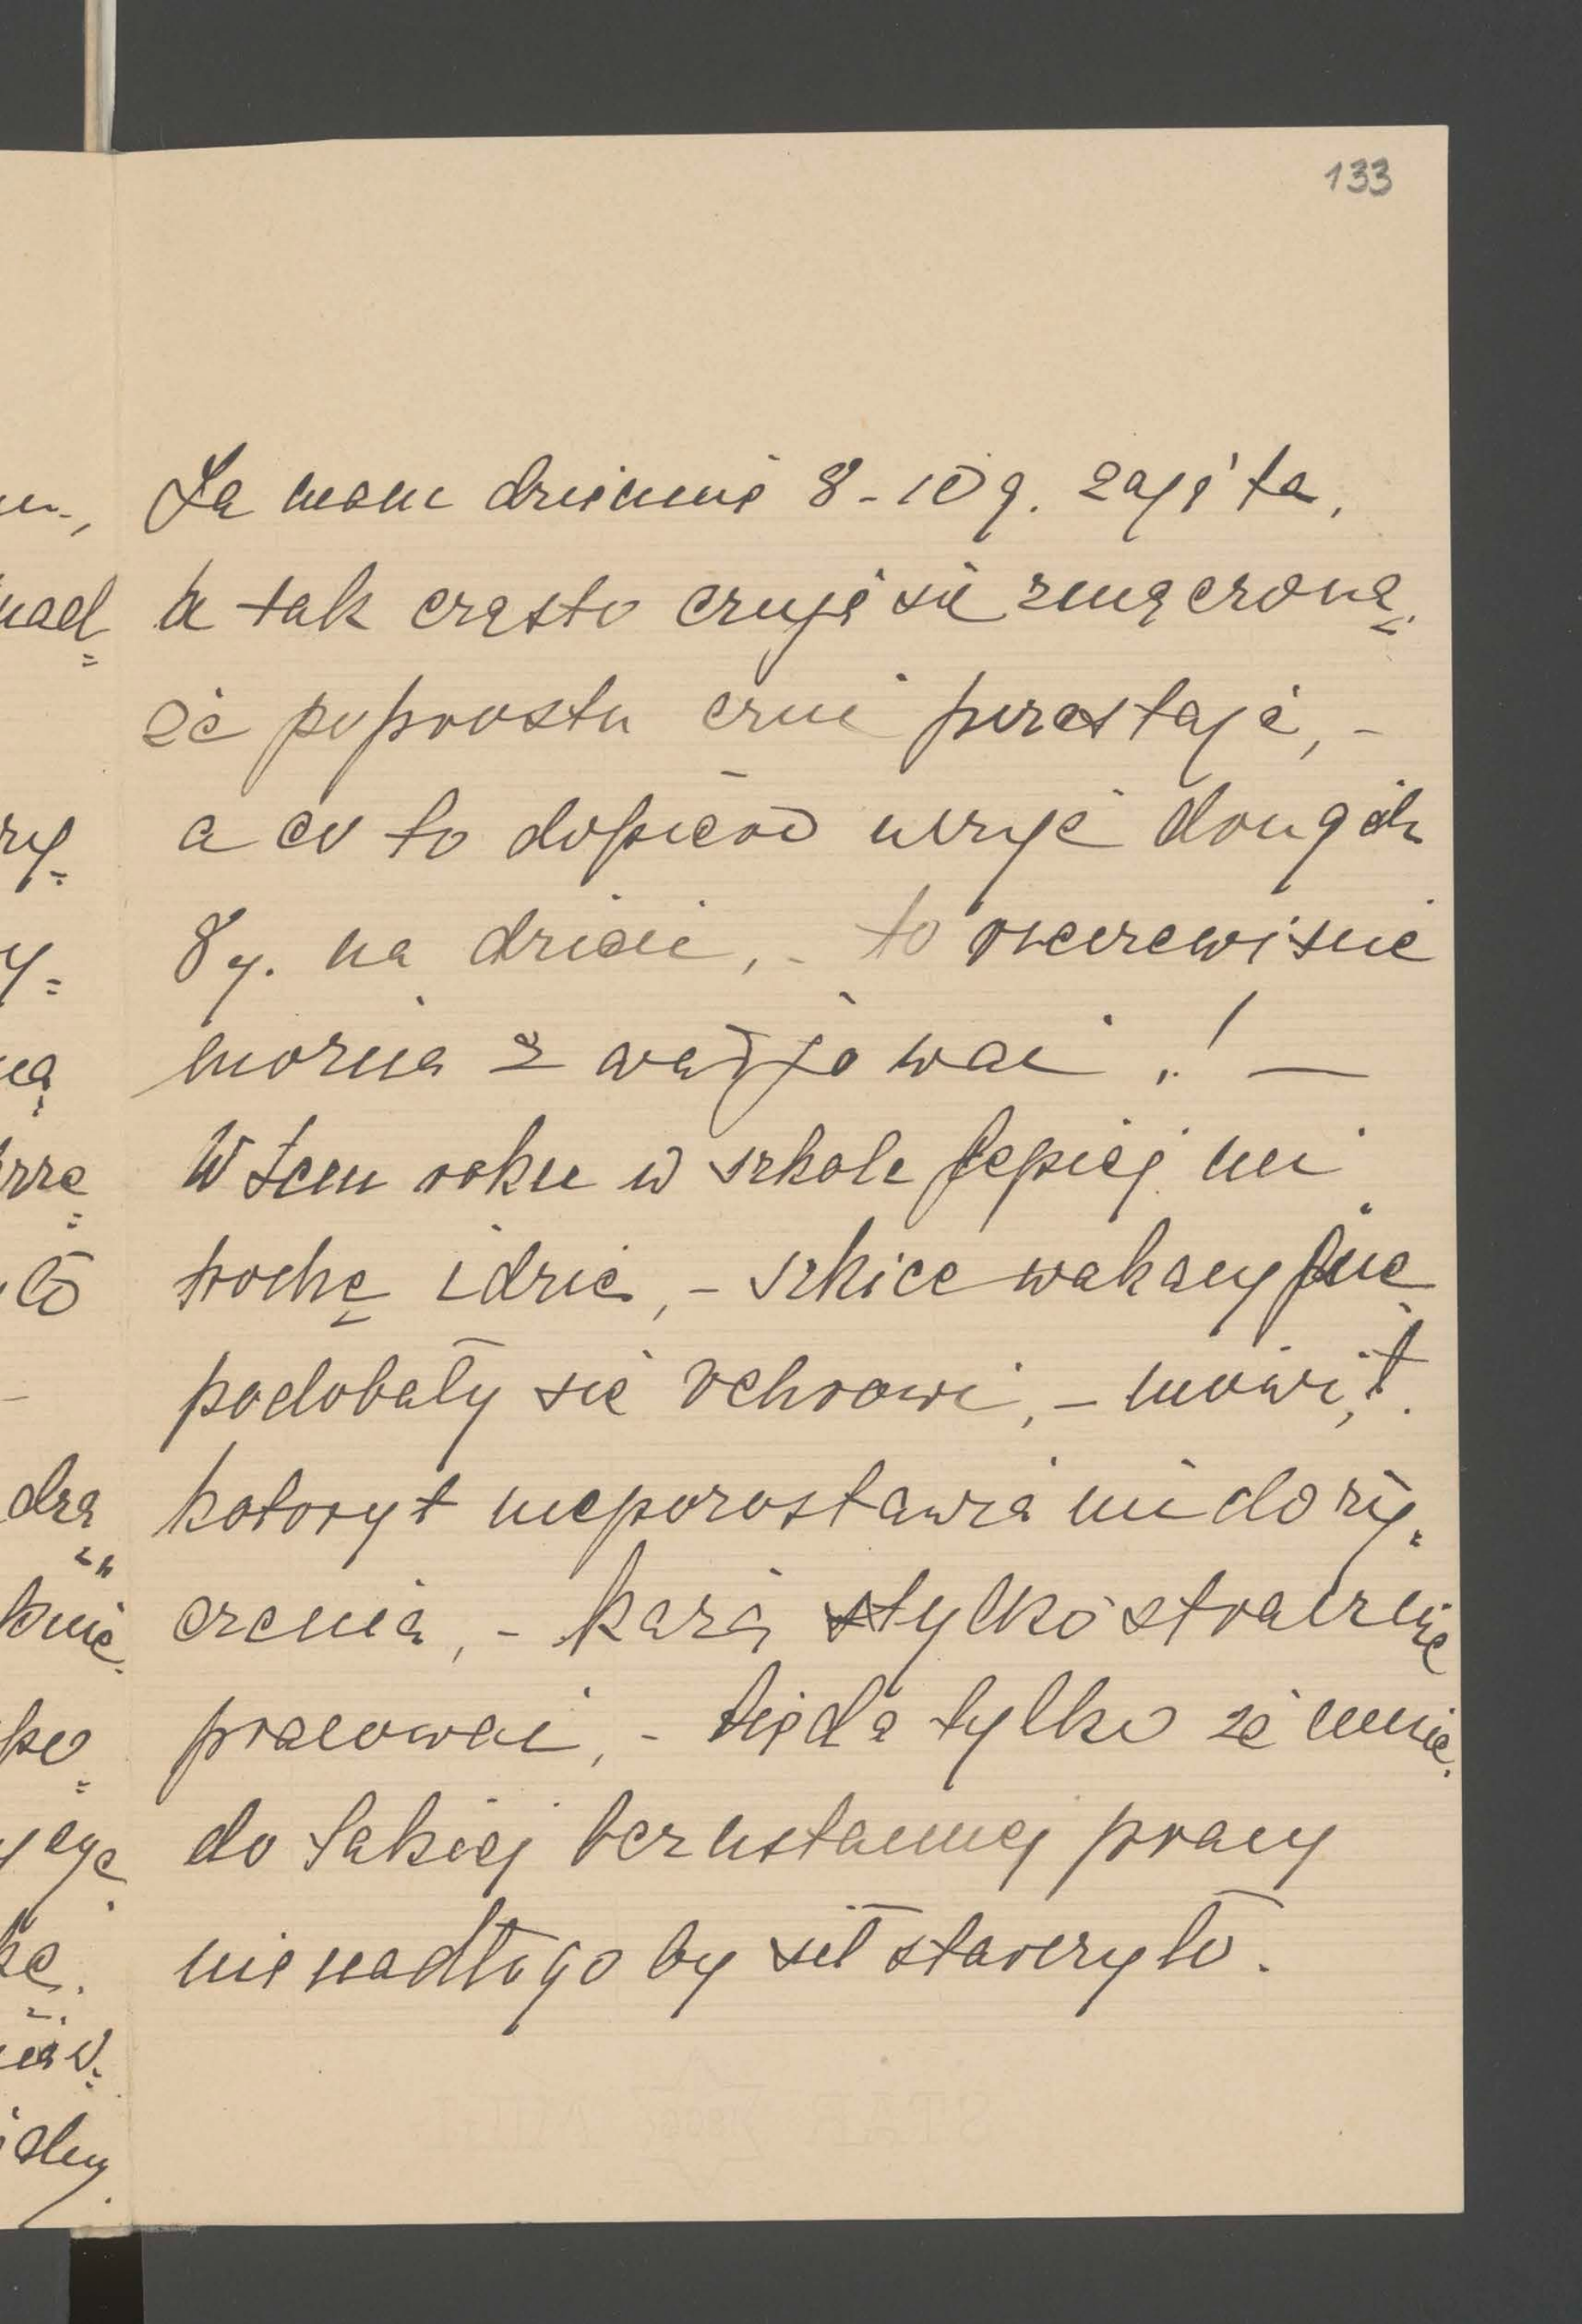 133
Ja mam dziennie 8-10 g. zajęta,
a tak często czuję się zmęczoną
że poprostu czuć przestaję, -
a co to dopiero uczyć drugich
8 g. na dzień, - to rzeczewiście
można zwarjować! —
W tem roku w szkole lepiej mi
trochę idzie, - szkice wakacyjne
podobały się, - mówił,
koloryt niepozostawia mi do ży=
czenia, - każą tylko strasznie
pracować, - bieda tylko że mnie
do takiej bezustannej pracy
nienadługo by sił starczyło.
nad=
ry=
y=
ną
rzę
ło
dzą
knie
po=